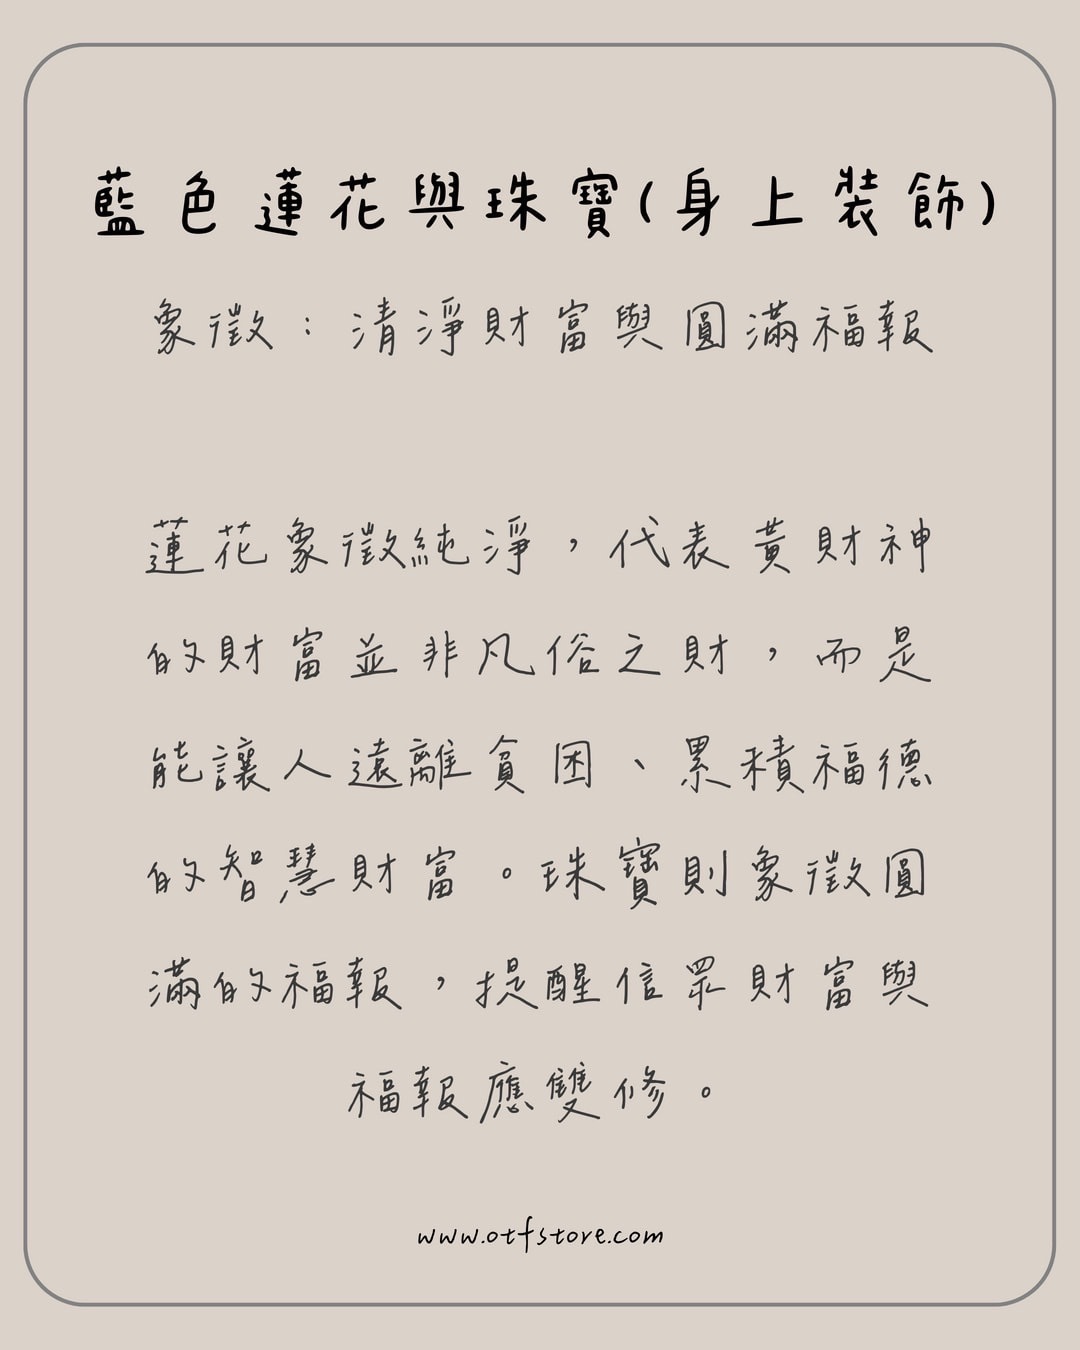 藍色蓮花與珠寶(身上裝飾)
象徵：清淨財富與圓滿福報
蓮花象徵純淨，代表黃財神
的財富並非凡俗之財，而是
能讓人遠離貧困、累積福德
的智慧財富。珠寶則象徵圓
滿的福報，提醒信眾財富與
福報應雙修。
www.otfstore.com